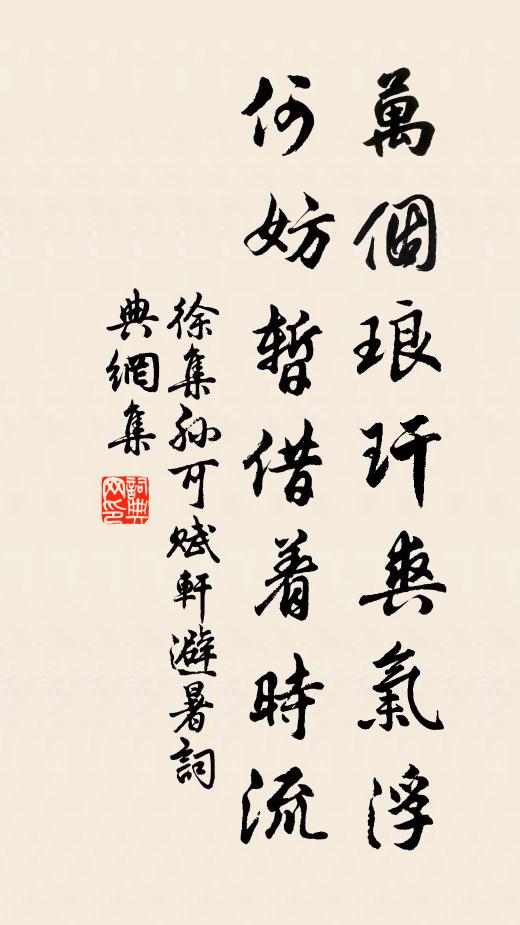 萬個琅玕爽氣浮
何妨暫借着時流
徐集孫可賦軒避暑詞
典網集
詞典
网印